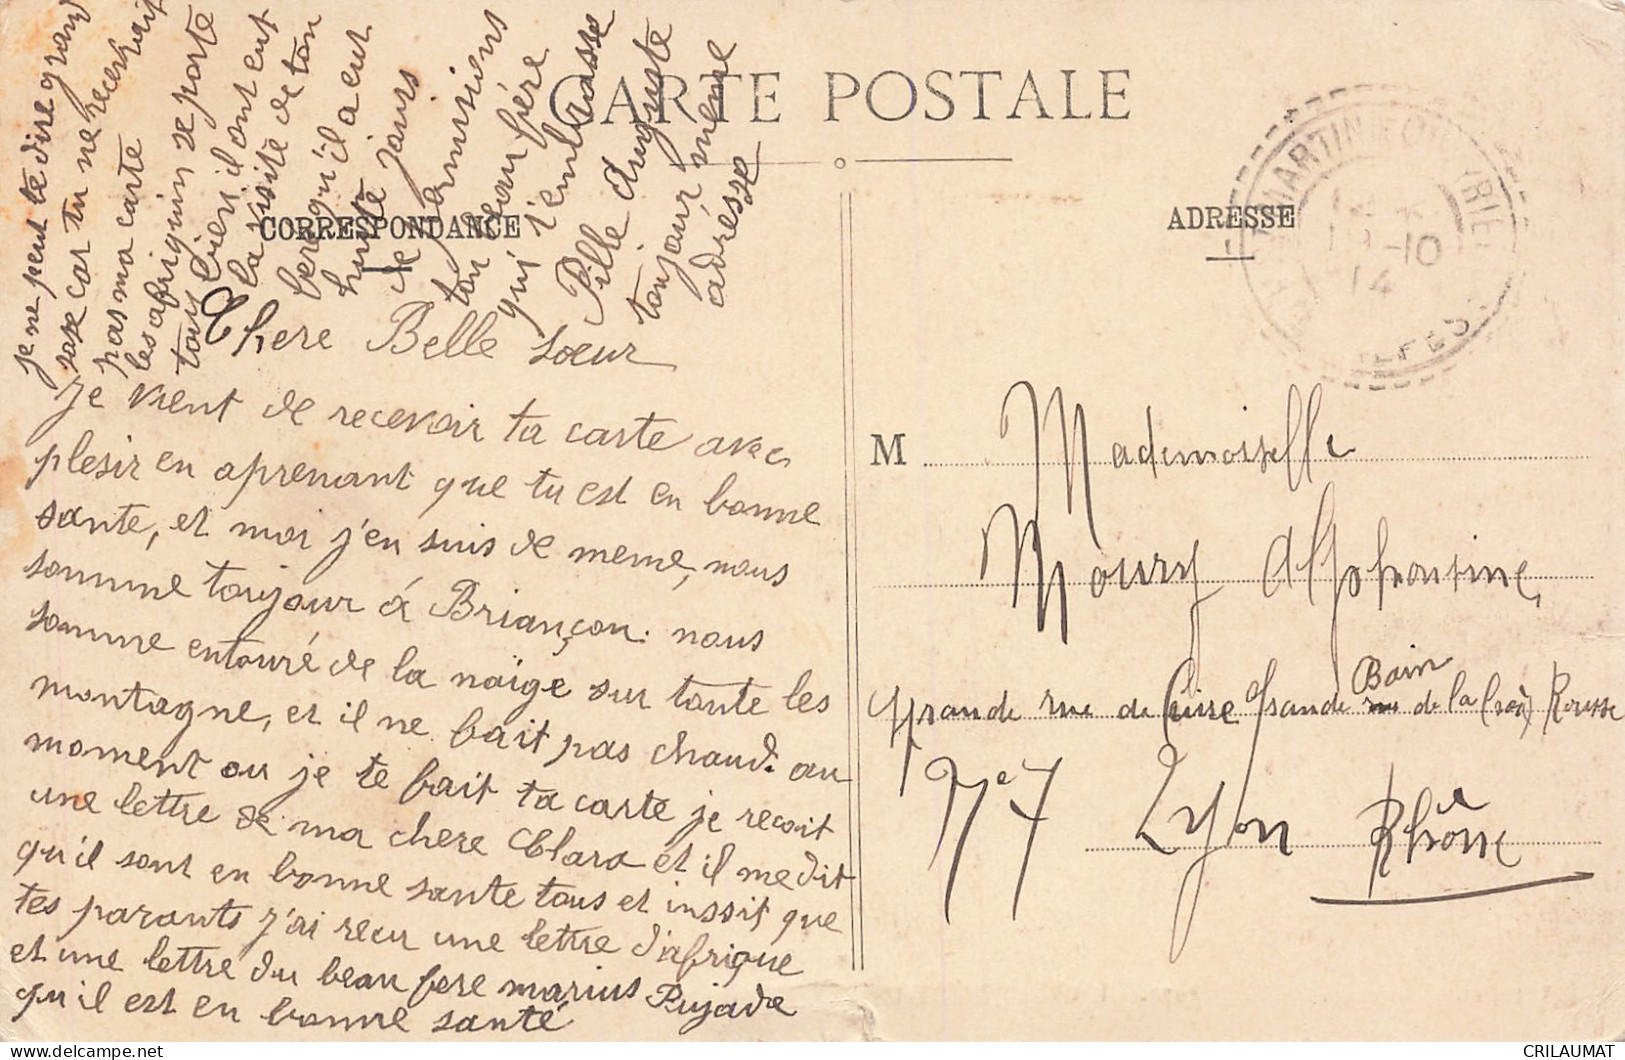 CARTE POSTALE
CORRESPONDANCE
ADRESSE
Chere Belle soeur
Je vient de recevoir ta carte avec
plesir en aprenant que tu est en bonne
sante, et moi j'en suis de meme, nous
somme toujour á Briançon. nous
somme entouré de la naige sur toute les
montagne, et il ne fait pas chaud. au
moment ou je te fait ta carte je recoit
une lettre de ma chere Clara et il me dit
qu'il sont en bonne sante tous et inssit que
tes parants j'ai recu une lettre d'afrique
et une lettre du beau fere marius Pujade
qu'il est en bonne santé
je ne peut te dire grand
saxe car tu ne recevrait
pas ma carte
les afriquin se porte
tous bien il ont eut
la visite de ton
fere qu'il a eut
huite jours
de permissiens
ton beau fére
qui t'embrasse
Pille Auguste
toujour meme
adresse
M Mademoiselle
Moury Alphonsine
Grande rue de Cuire Grande Bain rue de la Croix Rousse
No 7 Lyon Rhône
MARTIN
10
14
CRILAUMAT